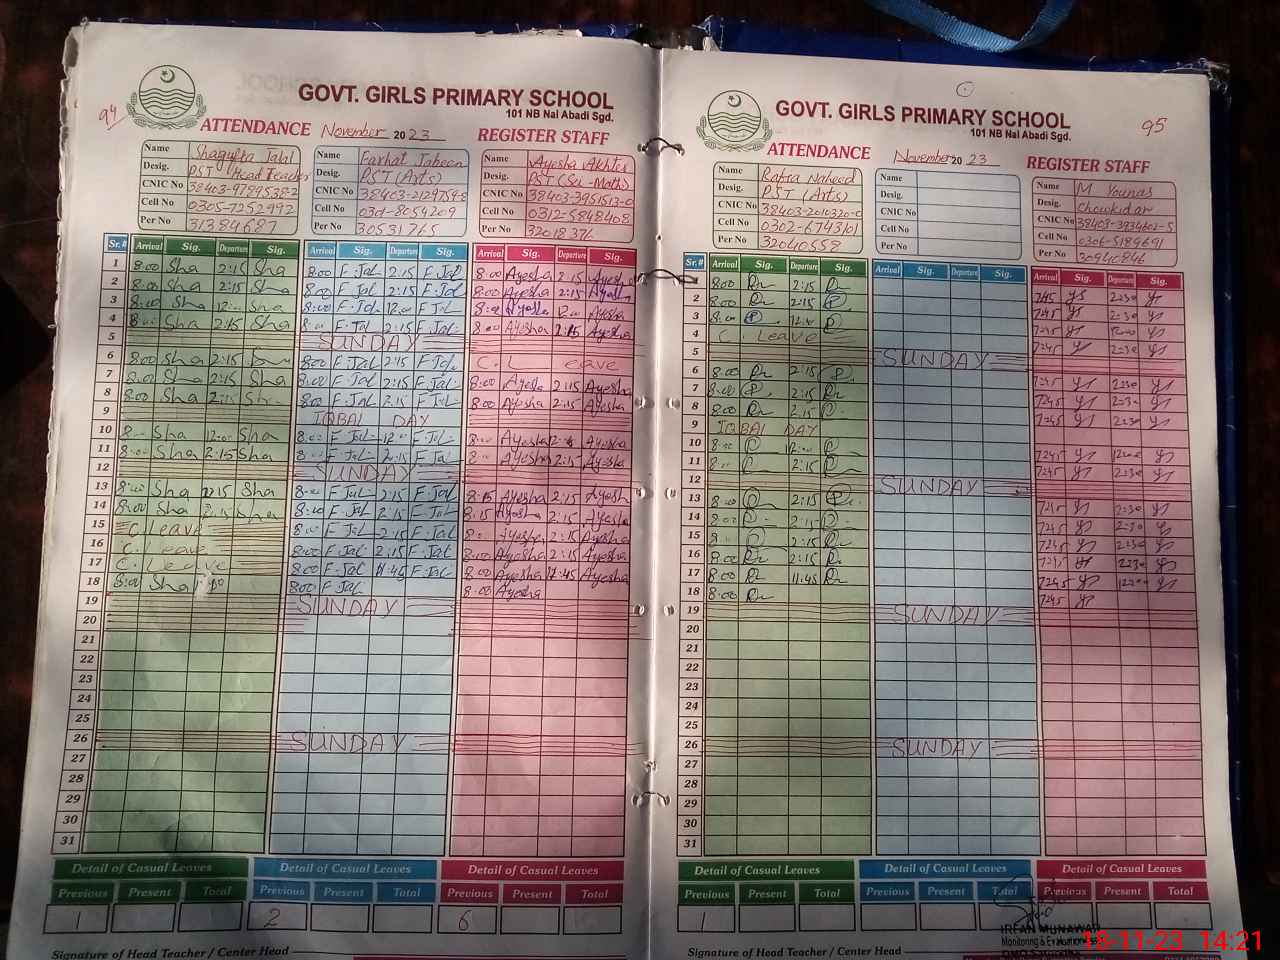 GOVT. GIRLS PRIMARY SCHOOL
101 NB Nai Abadi Sgd.
94
ATTENDANCE November 2023 REGISTER STAFF
Name Shagufta Jalal
Desig. PST Head Teacher
CNIC No 38403-9789538-2
Cell No 0305-7252992
Per No 31389687
Name Farhat Jabeen
Desig. PST (Arts)
CNIC No 38403-2129759-8
Cell No 0301-8054209
Per No 30531765
Name Ayesha Akhter
Desig. PST (Sci-Math)
CNIC No 38403-3951513-0
Cell No 0312-5848408
Per No 32018376
Sr.# Arrival Sig. Departure Sig. Arrival Sig. Departure Sig. Arrival Sig. Departure Sig.
1 8:00 Sha 2:15 Sha 8:00 F. Jal 2:15 F. Jal 8:00 Ayesha 2:15 Ayesha
2 8:00 Sha 2:15 Sha 8:00 F. Jal 2:15 F. Jal 8:00 Ayesha 2:15 Ayesha
3 8:00 Sha 12:00 Sha 8:00 F. Jal 12:00 F. Jal 8:00 Ayesha 12:00 Ayesha
4 8:00 Sha 2:15 Sha 8:00 F. Jal 2:15 F. Jal 8:00 Ayesha 2:15 Ayesha
5 SUNDAY
6 8:00 Sha 2:15 8:00 F. Jal 2:15 F. Jal C. Leave
7 8:00 Sha 2:15 Sha 8:00 F. Jal 2:15 F. Jal 8:00 Ayesha 2:15 Ayesha
8 8:00 Sha 2:15 Sha 8:00 F. Jal 2:15 F. Jal 8:00 Ayesha 2:15 Ayesha
9 IQBAL DAY
10 8:00 Sha 12:00 Sha 8:00 F. Jal 12:00 F. Jal 8:00 Ayesha Ayesha
11 8:00 Sha 2:15 Sha 8:00 F. Jal 2:15 F. Jal 8:00 Ayesha 2:15 Ayesha
12 SUNDAY
13 8:00 Sha 2:15 Sha 8:00 F. Jal 2:15 F. Jal 8:15 Ayesha 2:15 Ayesha
14 8:00 Sha 2:15 Sha 8:00 F. Jal 2:15 F. Jal 8:15 Ayesha 2:15 Ayesha
15 C. Leave 8:00 F. Jal 2:15 F. Jal 8:00 Ayesha 2:15 Ayesha
16 C. Leave 8:00 F. Jal 2:15 F. Jal 8:00 Ayesha 2:15 Ayesha
17 C. Leave 8:00 F. Jal 11:45 F. Jal 8:00 Ayesha 11:45 Ayesha
18 8:00 Sha 8:00 F. Jal 8:00 Ayesha
19 SUNDAY
20
21
22
23
24
25
26 SUNDAY
27
28
29
30
31
Detail of Casual Leaves Detail of Casual Leaves Detail of Casual Leaves
Previous Present Total Previous Present Total Previous Present Total
1 2 6
Signature of Head Teacher / Center Head
GOVT. GIRLS PRIMARY SCHOOL
101 NB Nai Abadi Sgd.
95
ATTENDANCE November 2023 REGISTER STAFF
Name Rafia Naheed
Desig. PST (Arts)
CNIC No 38403-2010320-0
Cell No 0302-6743101
Per No 32040558
Name
Desig.
CNIC No
Cell No
Per No
Name M Younas
Desig. Chowkidar
CNIC No 38403-3934602-5
Cell No 0306-5189691
Per No 30940846
Sr.# Arrival Sig. Departure Sig. Arrival Sig. Departure Sig. Arrival Sig. Departure Sig.
8:00 2:15 7:45 2:30
2 8:00 2:15 7:45 2:30
3 8:00 7:45
4 C. Leave 7:45 2:30
5 SUNDAY
6 8:00 2:15 7:45 2:30
7 8:00 2:15 7:45 2:30
8 8:00 2:15 7:45 2:30
9 IQBAL DAY
10 8:00 12:00 7:45
11 8:00 2:15 7:45 2:30
12 SUNDAY
13 8:00 2:15 7:45 2:30
14 8:00 2:15 7:45 2:30
15 8:00 2:15 7:45 2:30
16 8:00 2:15 7:45 2:30
17 8:00 11:45 7:45
18 8:00 7:45
19 SUNDAY
20
21
22
23
24
25
26 SUNDAY
27
28
29
30
31
Detail of Casual Leaves Detail of Casual Leaves Detail of Casual Leaves
Previous Present Total Previous Present Total Previous Present Total
1
IRFAN MUNAWAR
Signature of Head Teacher / Center Head
18-11-23 14:21